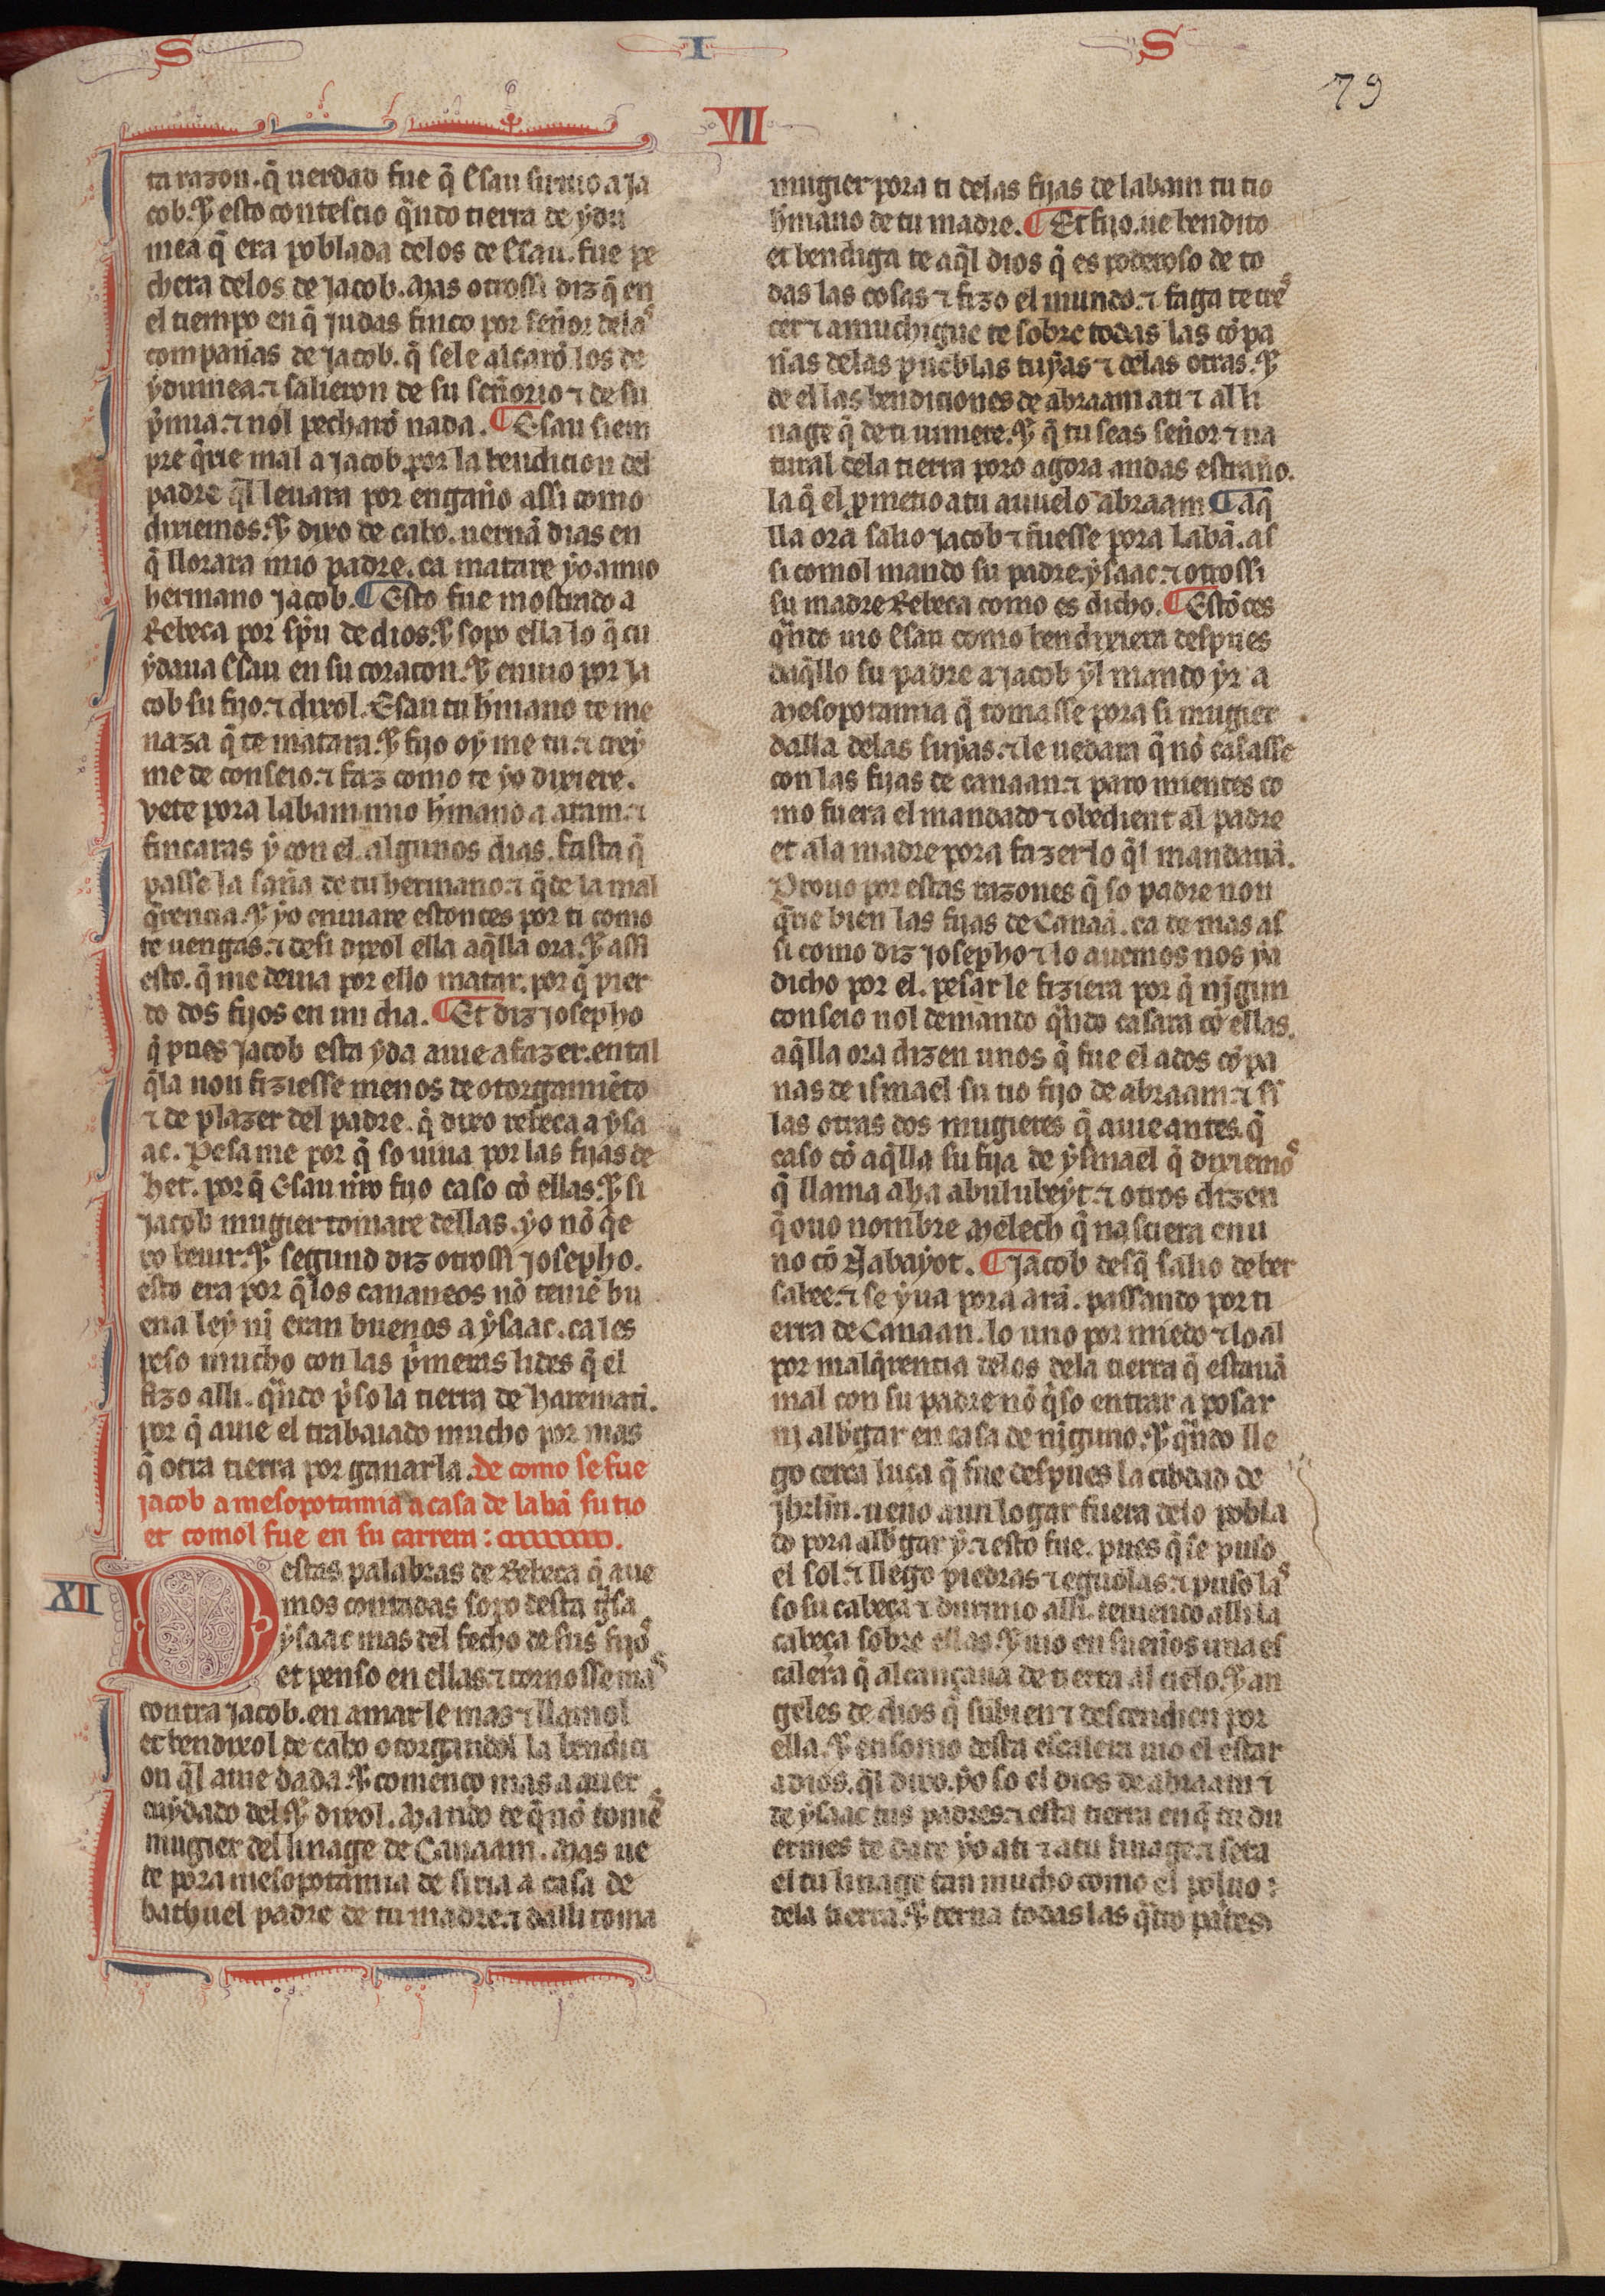 S I S
79
VII
ta razon. q̃ uerdad fue q̃ Esau siruio a Ja
cob. Et esto contescio q̃ndo tierra de ydu
mea q̃ era poblada delos de Esau. fue pe
chera delos de Jacob. Mas otrossi diz q̃ en
el tiempo en q̃ Judas finco por señor delas
compañas de Jacob. q̃ sele alçarõ los de
ydumea. ⁊ salieron de su señorio ⁊ de su
p̃mia. ⁊ nol pecharõ nada. ¶ Esau siem
pre q̃rie mal a Jacob. por la bendicion del
padre q̃l leuara por engaño assi como
dixiemos. Et dixo de cabo. uernã dias en
q̃ llorara mio padre. ca matare yo a mio
hermano Jacob. ¶ Esto fue mostrado a
Rebeca por sp̃u de dios. Et sopo ella lo q̃ cu
ydaua Esau en su coraçon. Et enuio por Ja
cob su fijo. ⁊ dixol. Esau tu h̃mano te me
naza q̃ te matara. Et fijo oy me tu. ⁊ crey
me de conseio. ⁊ faz como te yo dixiere.
vete pora labam mio h̃mano a aram. ⁊
fincaras y con el. algunos dias. fasta q̃
passe la saña de tu hermano. ⁊ q̃de la mal
q̃rencia. Et yo enuiare estonces por ti como
te uengas. ⁊ desi dixol ella aq̃lla ora. Et assi
esto. q̃ me deuia por ello matar. por q̃ pier
do dos fijos en un dia. ¶ Et diz Josepho
q̃ pues Jacob esta yda auie a fazer. en tal
q̃la non fiziesse menos de otorgamiẽto
⁊ de plazer del padre. q̃ dixo rebeca a ysa
ac. Pesa me por q̃ so uiua por las fijas de
het. por q̃ Esau mio fijo caso cõ ellas. Et si
Jacob mugier tomare dellas. yo nõ q̃e
ro beuir. Et segund diz otrossi Josepho.
esto era por q̃ los cananeos nõ teniẽ bu
ena ley nj eran buenos a ysaac. ca les
peso mucho con las p̃meras lides q̃ el
fizo alli. q̃ndo p̃so la tierra de haremari.
por q̃ auie el trabaiado mucho por mas
q̃ otra tierra por ganarla. De como se fue
jacob a mesopotamia a casa de labã su tio
et comol fue en su carrera:
XII
D estas palabras de Rebeca q̃ aue
mos contadas sopo desta g̃sa
ysaac mas del fecho de sus fijos
et penso en ellas. ⁊ tornosse mas
contra Jacob. en amarle mas ⁊ llamol
et bendixol de cabo otorgandol la bendici
on q̃l auie dada. Et començo mas a auer
cuydado del. Et dixol. Mando te q̃ nõ tomes
mugier del linage de Canaam. Mas ue
te pora mesopotamia de siria a casa de
bathuel padre de tu madre. ⁊ dalli toma
mugier pora ti delas fijas de labam tu tio
h̃mano de tu madre. ¶ Et fijo. ue bendito
et bendiga te aq̃l dios q̃ es poderoso de to
das las cosas ⁊ fizo el mundo. ⁊ faga te cres
cer ⁊ amuchigue te sobre todas las cõpa
ñas delas pueblas tuyas ⁊ delas otras. Et
de el las bendiciones de abraam a ti ⁊ al li
nage q̃ de ti uiniere. Et q̃ tu seas señor ⁊ na
tural dela tierra poro agora andas estraño.
la q̃ el p̃metio atu auuelo abraam ¶ Aq̃
lla ora salio Jacob ⁊ fuesse pora Labã. as
si comol mando su padre ysaac. ⁊ otrossi
su madre Rebeca como es dicho. ¶ Estõces
q̃ndo uio Esau como bendixiera despues
daq̃llo su padre a Jacob yl mando yr a
Mesopotamia q̃ tomasse pora si mugier
dalla delas suyas. ⁊ le uedara q̃ nõ casasse
con las fijas de canaan. ⁊ paro mientes co
mo fuera el mandado ⁊ obedient al padre
et ala madre pora fazer lo q̃l mandauã.
Prouo por estas razones q̃ so padre non
q̃rie bien las fijas de Canaã. ca de mas as
si como diz Josepho ⁊ lo auemos nos ya
dicho por el. pesar le fiziera por q̃ njgun
conseio nol demando q̃ndo casara cõ ellas.
aq̃lla ora dizen unos q̃ fue el a dos cõpa
nas de ismael su tio fijo de abraam. ⁊ ss
las otras dos mugieres q̃ auie antes. q̃
caso cõ aq̃lla su fija de ysmael q̃ dixiemos
q̃ llama aba abulubeyt. ⁊ otros dizen
q̃ ouo nombre Melech q̃ nasciera en u
no cõ Nabayot. ¶ Jacob desq̃ salio de ber
sabee. ⁊ se yua pora arã. passando por ti
erra de Canaan. lo uno por miedo ⁊ lo al
por malq̃rentia delos dela tierra q̃ estauã
mal con su padre nõ q̃so entrar a posar
nj alb̃gar en casa de njguno. Et q̃ndo lle
go cerca luça q̃ fue despues la cibdad de
jhrlm̃. ueno a un logar fuera delo pobla
do pora alb̃gar y. ⁊ esto fue. pues q̃ se puso
el sol. ⁊ llego piedras ⁊ eguolas. ⁊ puso las
so su cabeça ⁊ durmio alli. teniendo alli la
cabeça sobre ellas. Et uio en sueños una es
calera q̃ alcançaua de tierra al cielo. Et an
geles de dios q̃ subien ⁊ descendien por
ella. Et en somo desta escalera uio el estar
a dios. q̃l dixo. yo so el dios de abraam ⁊
de ysaac tus padres. ⁊ esta tierra en q̃ tu du
ermes te dare yo ati ⁊ atu linage. ⁊ sera
el tu linage tan mucho como el poluo:
dela tierra. Et terna todas las q̃tro partes